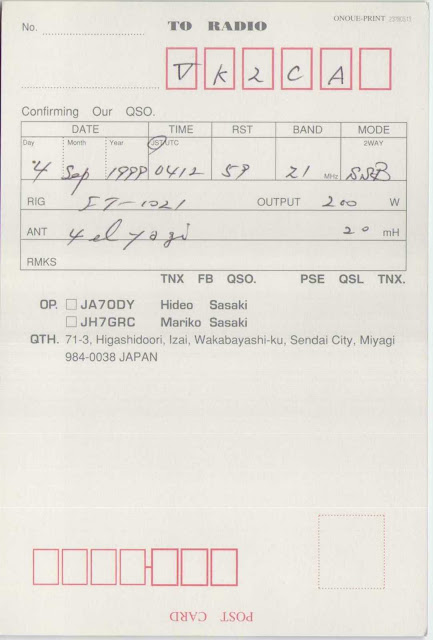 No. TO RADIO ONOUE-PRINT
VK2CA
Confirming Our QSO.
DATE TIME RST BAND MODE
Day Month Year JST/UTC 2WAY
4 Sep 1999 0412 59 21 MHz SSB
RIG FT-1021 OUTPUT 200 W
ANT 4 el yagi 20 mH
RMKS
TNX FB QSO. PSE QSL TNX.
OP. □ JA7ODY Hideo Sasaki
□ JH7GRC Mariko Sasaki
QTH. 71-3, Higashidoori, Izai, Wakabayashi-ku, Sendai City, Miyagi
984-0038 JAPAN
POST CARD